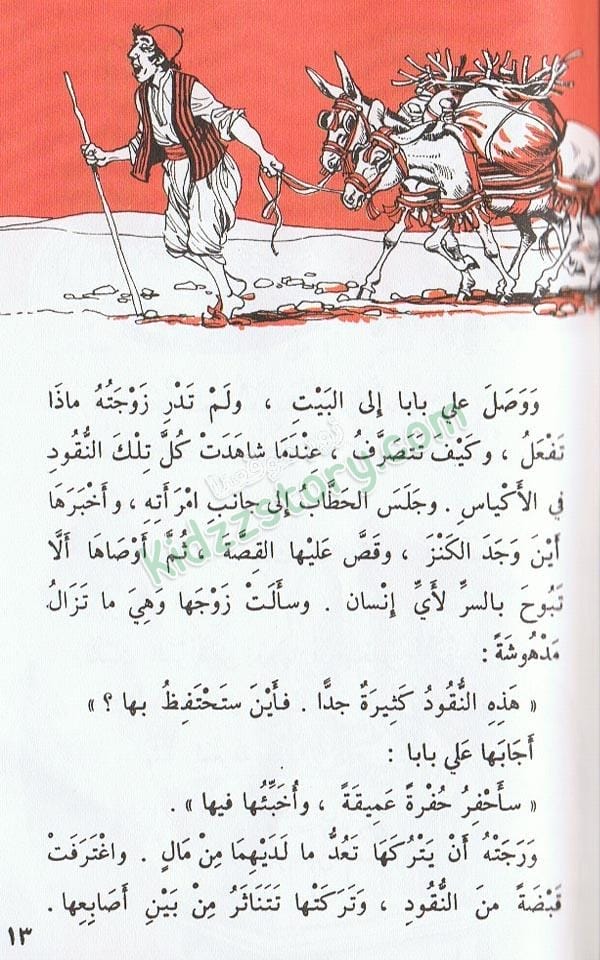 وَوَصَلَ علي بابا إلى البَيْتِ ، ولَمْ تَدْرِ زَوْجَتُهُ ماذَا
تَفْعَلُ ، وكَيْفَ تَتَصَرَّفُ ، عِنْدَمَا شاهَدَتْ كُلَّ تِلْكَ النُّقُودِ
في الأَكْياسِ . وجَلَسَ الحَطَّابُ إلى جانِبِ امْرَأَتِهِ ، وأَخْبَرَهَا
أَيْنَ وَجَدَ الكَنْزَ ، وقَصَّ عَلَيْها القِصَّةَ ، ثُمَّ أَوْصَاهَا أَلَّا
تَبُوحَ بالسرِّ لأَيِّ إنْسان . وسأَلَتْ زَوْجَها وَهِيَ ما تَزَالُ
مَدْهُوشَةً :
« هَذِهِ النُّقُودُ كَثِيرَةٌ جدًّا . فأَيْنَ ستَحْتَفِظُ بها ؟ »
أَجَابَها عَلي بابا :
« سأَحْفِرُ حُفْرَةً عَمِيقَةً ، وأُخَبِّئُها فيها » .
ورَجَتْهُ أَنْ يَتْرُكَهَا تَعُدُّ ما لَدَيْهِمَا مِنْ مَالٍ . واغْتَرَفَتْ
قَبْضَةً منَ النُّقُودِ ، وَتَرَكَتْها تَتَنَاثَرُ مِنْ بَيْنِ أَصَابِعِها .
١٣
kidzzstory.com